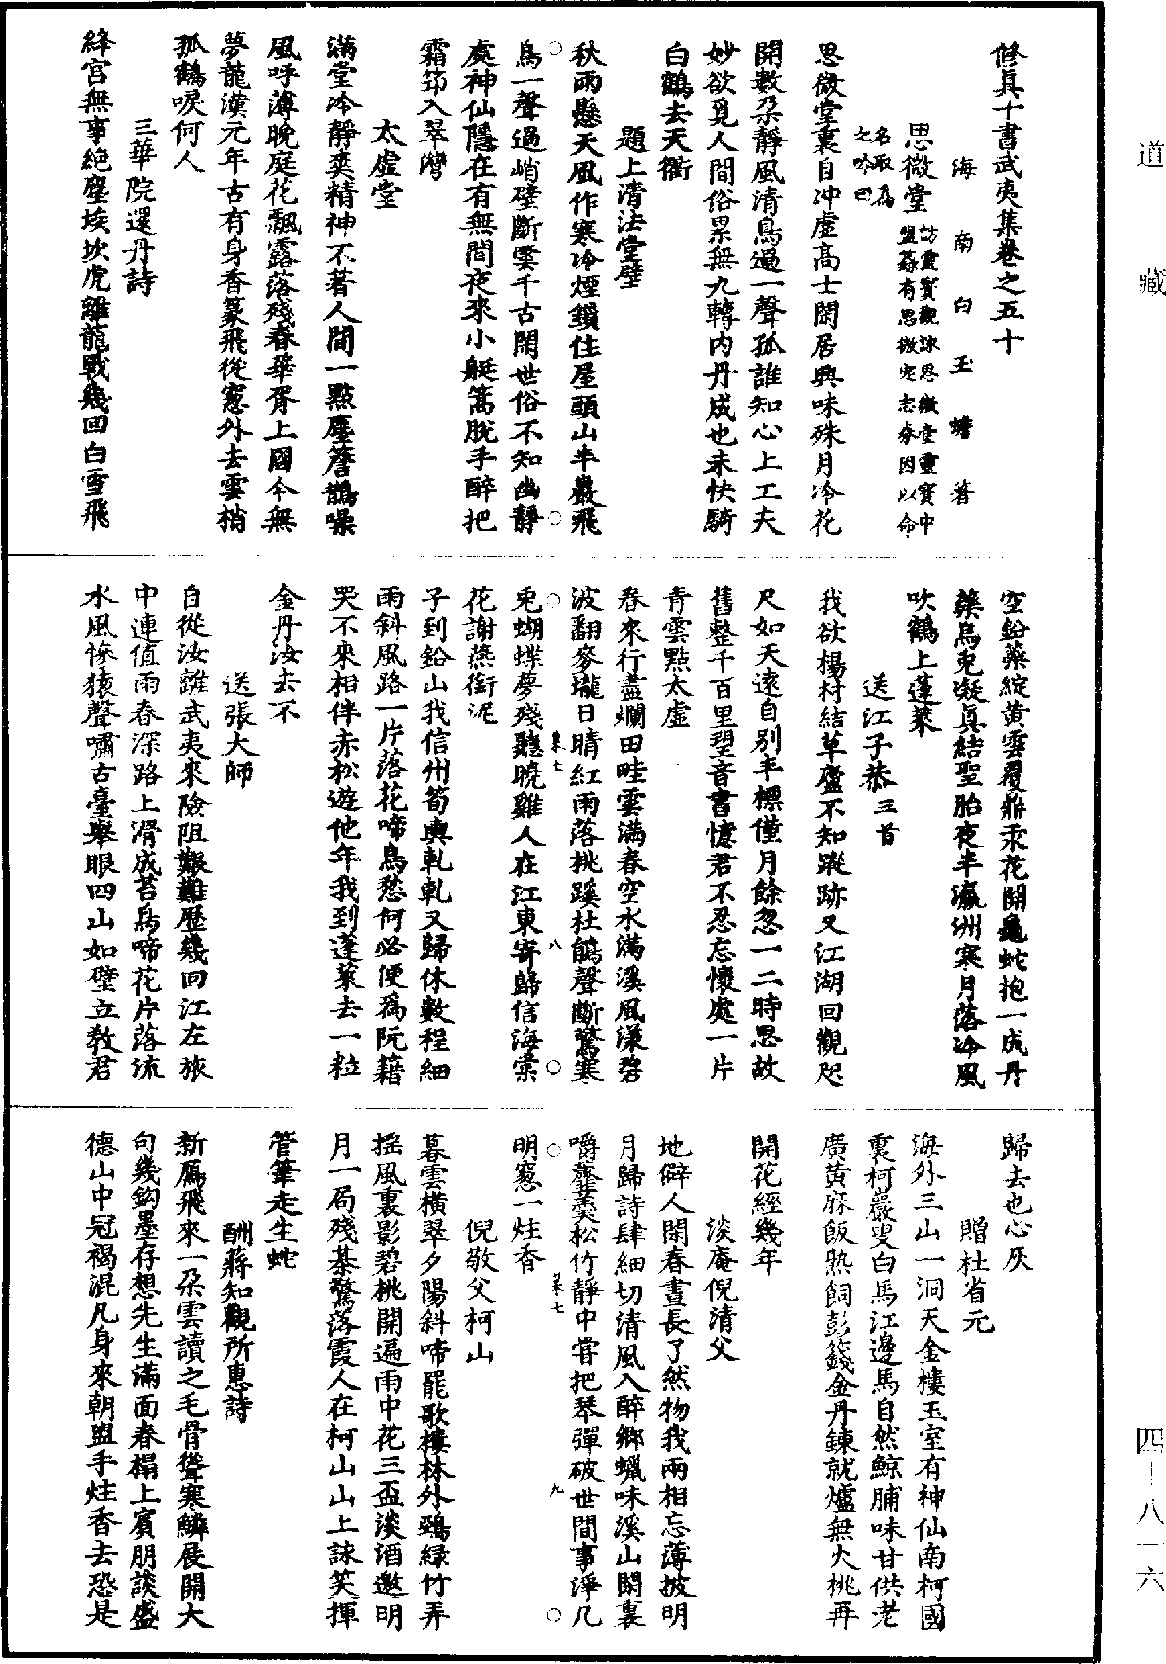 道藏
四—八一六
修真十書武夷集卷之五十
海南白玉蟾著
思微堂
訪靈寶觀詠思微堂靈寶中
盟籙有思微定志券因以命
名取為
之吟曰
思微堂裏自沖虛高士閑居興味殊月冷花
開數朵靜風清鳥過一聲孤誰知心上工夫
妙欲覓人間俗累無九轉內丹成也未快騎
白鶴去天衢
題上清法堂壁
秋雨懸天風作寒冷煙鎖住屋頭山半巖飛
鳥一聲過峭壁斷雲千古閑世俗不知幽靜
處神仙隱在有無間夜來小艇篙脫手醉把
霜筇入翠灣
太虛堂
滿堂冷靜奭精神不著人間一點塵簷鵲噪
風呼薄晚庭花飄露落殘春華胥上國今無
夢龍漢元年古有身香篆飛從窗外去雲梢
孤鶴唳何人
三華院還丹詩
絳宮無事絕塵埃坎虎離龍戰幾回白雪飛
空鉛蘂綻黃雲覆鼎汞花開龜蛇抱一成丹
藥烏兔凝真結聖胎夜半瀛洲寒月落冷風
吹鶴上蓬萊
送江子恭三首
我欲楊村結草廬不知蹤跡又江湖回觀咫
尺如天遠自別半標僅月餘忽一二時思故
舊整千百里望音書憶君不忍忘懷處一片
青雲點太虛
春來行盡爛田畦雲滿春空水滿溪風漾碧
波翻麥壠日晴紅雨落桃蹊杜鵑聲斷驚寒
兔蝴蝶夢殘聽曉雞人在江東寄歸信海棠
花謝燕銜泥
子到鉛山我信州筍輿軋軋又歸休數程細
雨斜風路一片落花啼鳥愁何必便為阮籍
哭不來相伴赤松遊他年我到蓬萊去一粒
金丹汝去不
送張大師
自從汝離武夷來險阻艱難歷幾回江左旅
中連值雨春深路上滑成苔鳥啼花片落流
水風慘猿聲嘯古臺舉眼四山如壁立教君
歸去也心灰
贈杜省元
海外三山一洞天金樓玉室有神仙南柯國
裏柯巖叟白馬江邊馬自然鯨脯味甘供老
廣黃麻飯熟飼彭籛金丹鍊就爐無火桃再
開花經幾年
淡庵倪清父
地僻人閑春晝長了然物我兩相忘薄披明
月歸詩肆細切清風入醉鄉蠟味溪山閑裏
嚼虀羹松竹靜中嘗把琴彈破世間事淨几
明窗一炷香
倪敬父柯山
暮雲橫翠夕陽斜啼罷歌樓林外鴉綠竹弄
搖風裏影碧桃開遍雨中花三盃淡酒邀明
月一局殘棊驚落霞人在柯山山上詠笑揮
管筆走生蛇
酬蔣知觀所惠詩
新鴈飛來一朵雲讀之毛骨聳寒鱗展開大
句幾鉤墨存想先生滿面春榻上賓朋談盛
德山中冠褐混凡身來朝盥手炷香去恐是